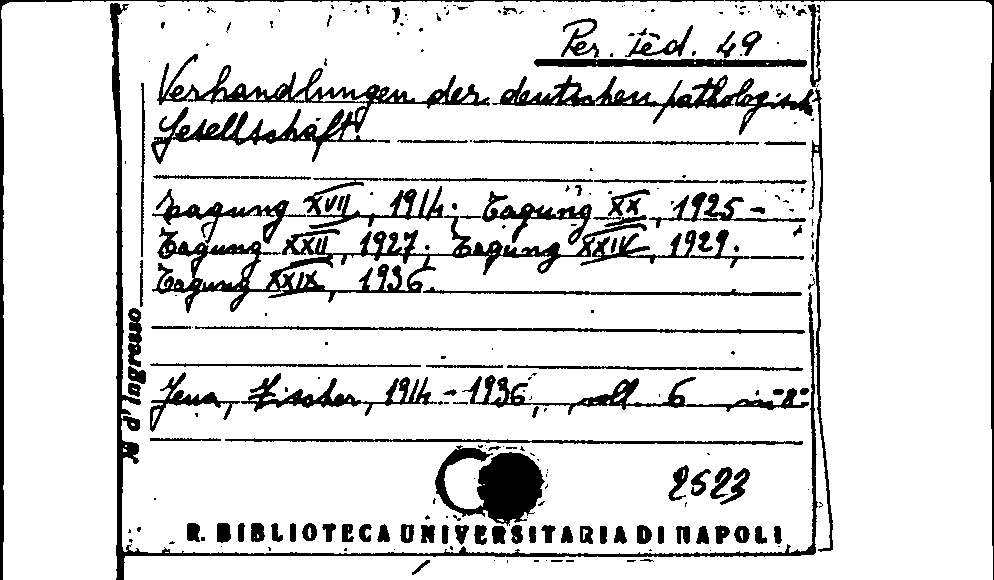 Per. ted. 49
Verhandlungen der deutschen pathologisch
Gesellschaft.
Tagung XVII, 1914; Tagung XX, 1925 -
Tagung XXII, 1927; Tagung XXIV, 1929;
Tagung XXIX, 1936.
Jena, Fischer, 1914 - 1936, voll. 6 in-8°
2523
R. BIBLIOTECA UNIVERSITARIA DI NAPOLI
N d'Ingresso